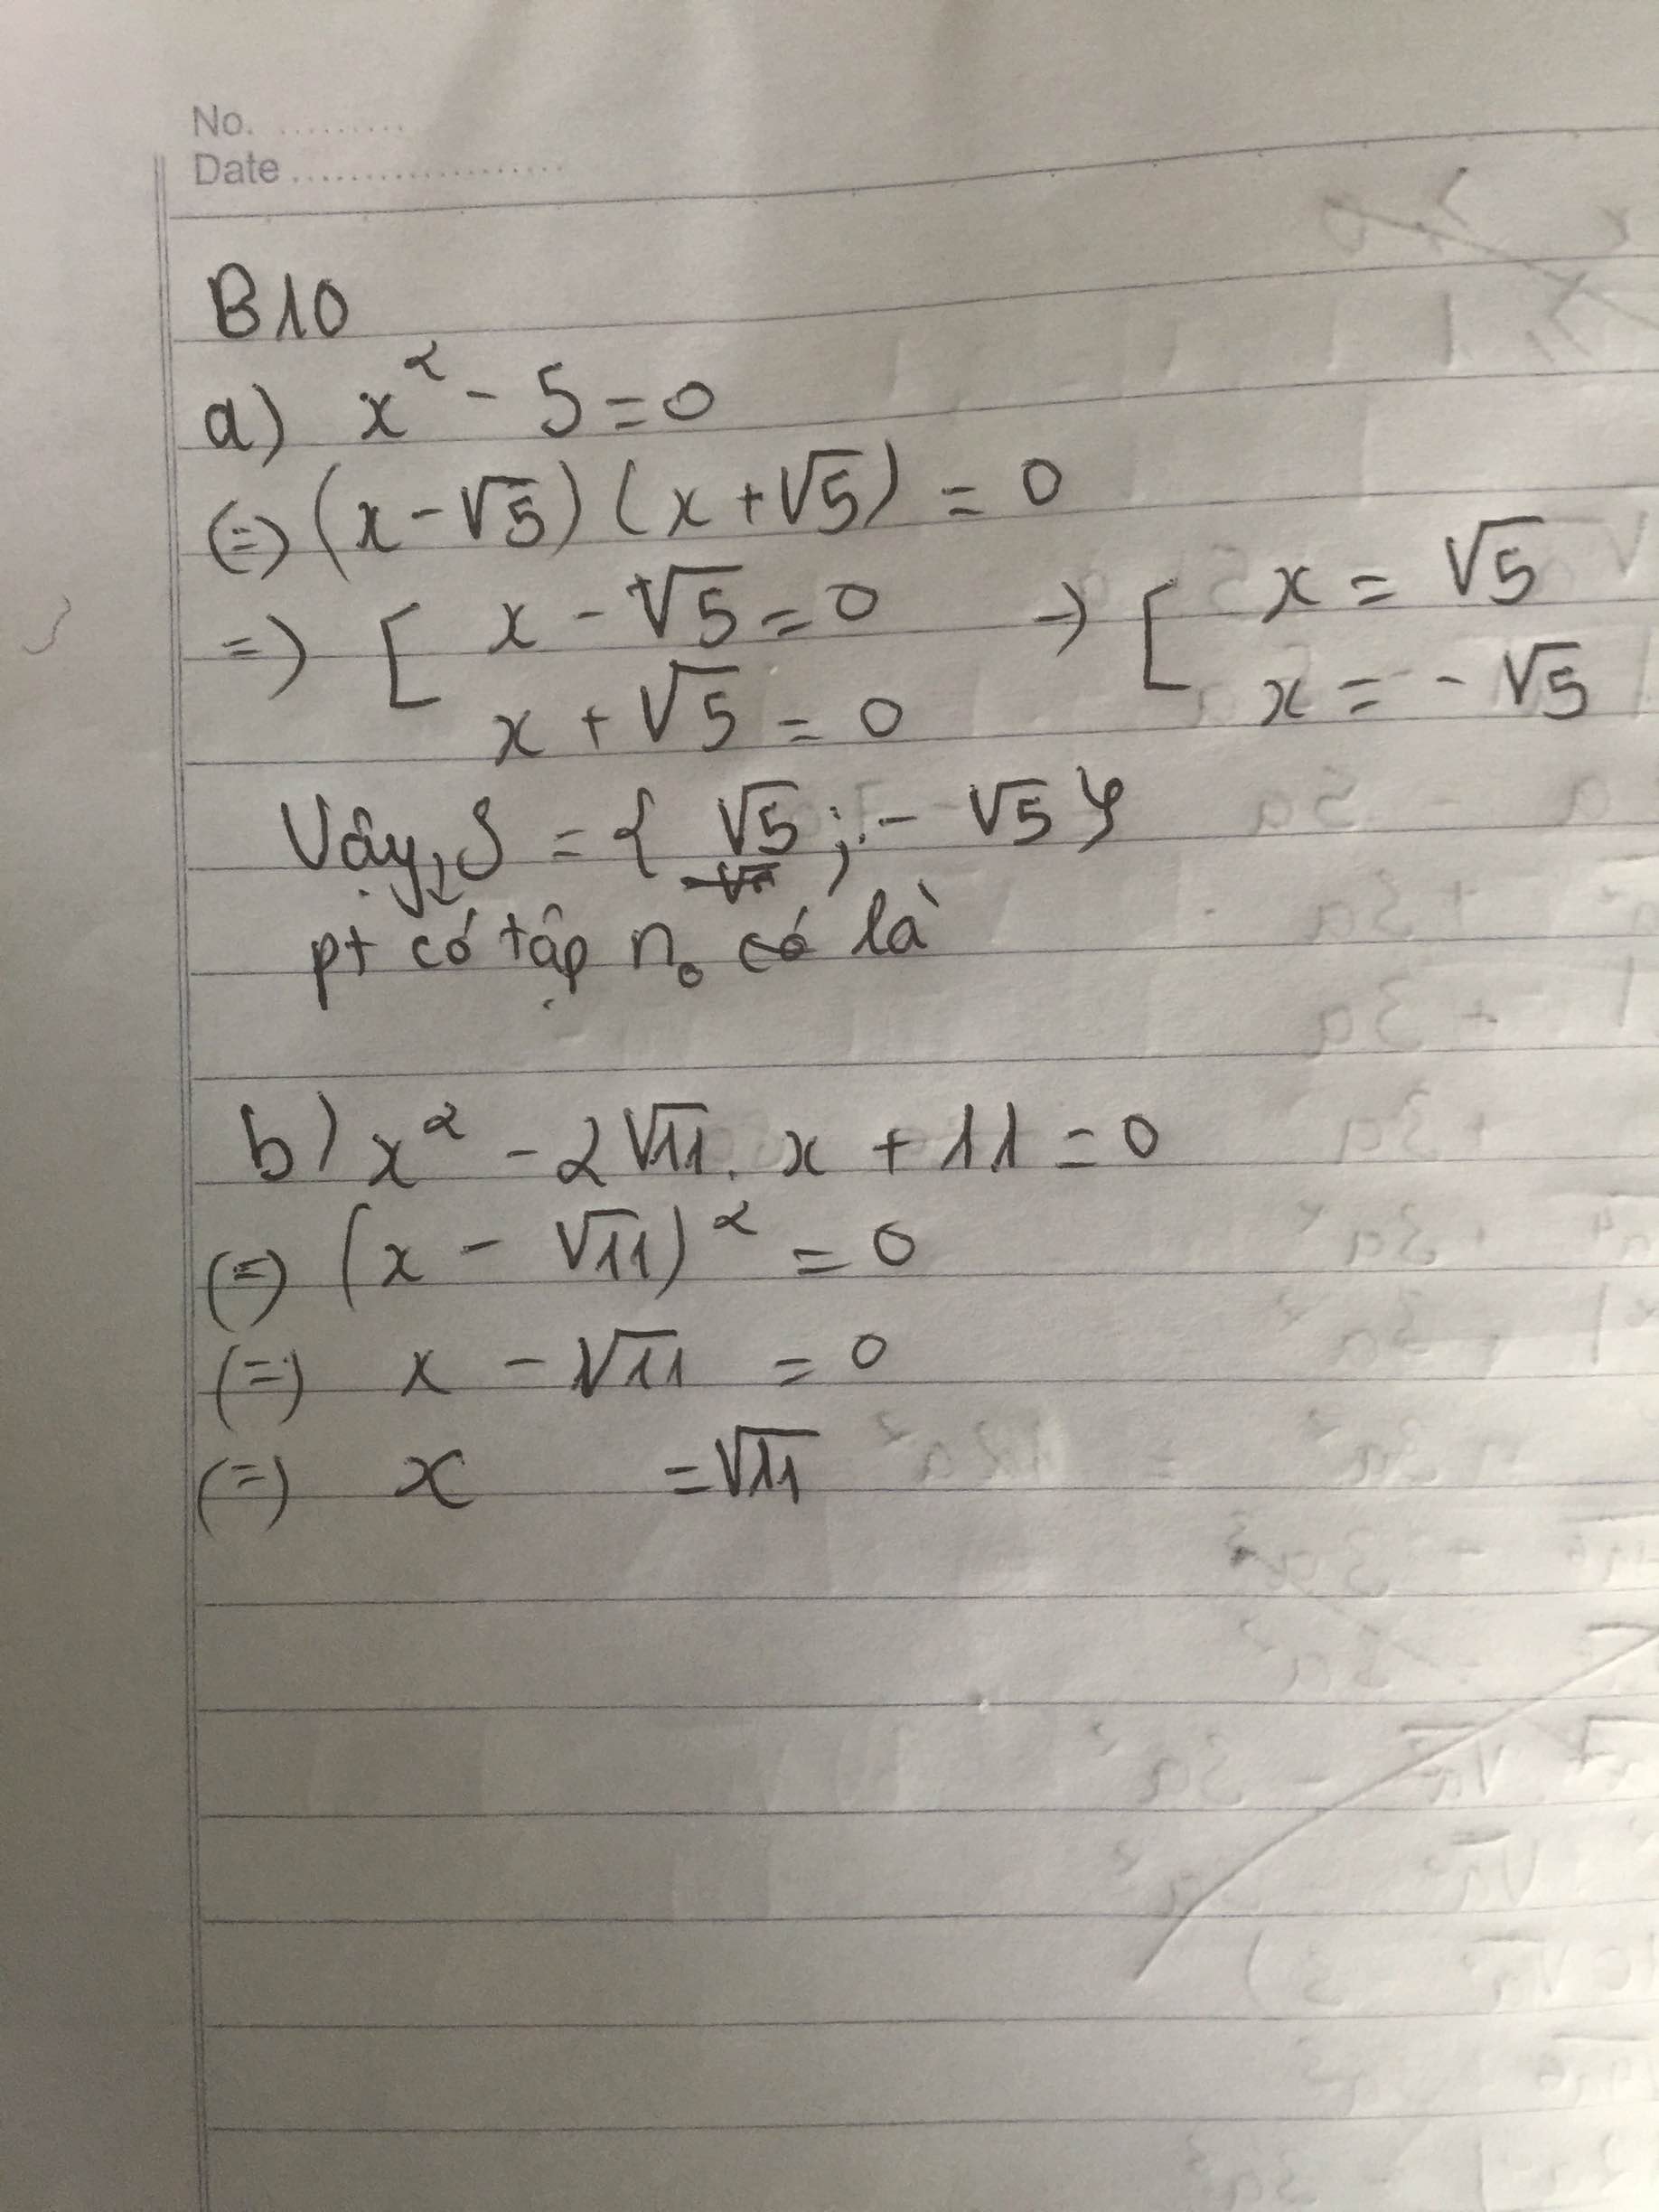 No. .........
Date ...................
B10
a) x² - 5 = 0
(=) (x - √5) (x + √5) = 0
=) [ x - √5 = 0 → [ x = √5
x + √5 = 0 x = - √5
Vậy, S = { √5 ; - √5 }
pt có tập n₀ có là
b) x² - 2√11 . x + 11 = 0
(=) (x - √11)² = 0
(=) x - √11 = 0
(=) x = √11